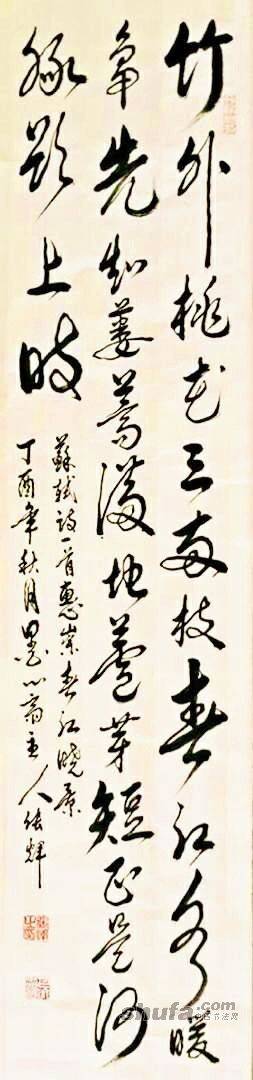 竹外桃花三兩枝春江水暖
先知蔞蒿滿地蘆芽短正是河
豚欲上時
蘇軾詩一首惠崇春江曉景
丁酉年秋月齋主人張輝
shufa.com
中国书法网